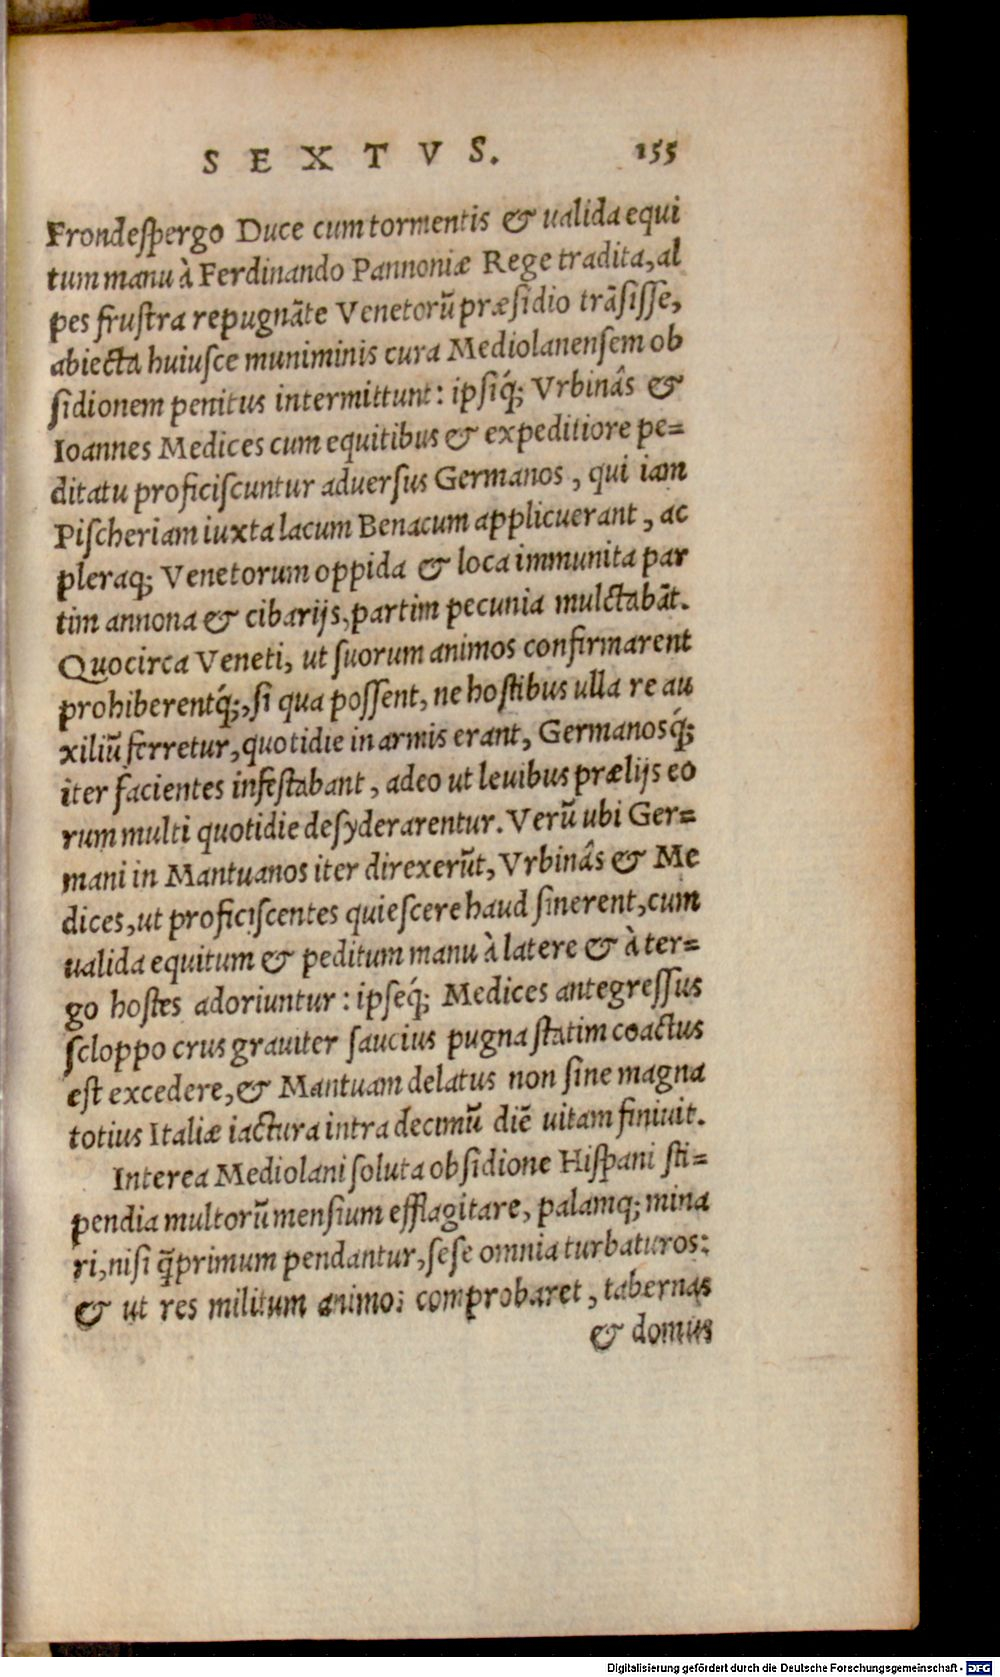 SEXTVS. 155
Frondeſpergo Duce cum tormentis & ualida equi
tum manu à Ferdinando Pannoniæ Rege tradita, al
pes fruſtra repugnãte Venetorũ præſidio trãſiſſe,
abiecta huiuſce muniminis cura Mediolanenſem ob
ſidionem penitus intermittunt: ipſiq́; Vrbinâs &
Ioannes Medices cum equitibus & expeditiore pe=
ditatu proficiſcuntur aduerſus Germanos, qui iam
Piſcheriam iuxta lacum Benacum applicuerant, ac
pleraq; Venetorum oppida & loca immunita par
tim annona & cibarijs, partim pecunia mulctabãt.
Quocirca Veneti, ut ſuorum animos confirmarent
prohiberentq́;, ſi qua poſſent, ne hoſtibus ulla re au
xiliũ ferretur, quotidie in armis erant, Germanosq́;
iter facientes infeſtabant, adeo ut leuibus prælijs eo
rum multi quotidie deſyderarentur. Verũ ubi Ger=
mani in Mantuanos iter direxerũt, Vrbinâs & Me
dices, ut proficiſcentes quieſcere haud ſinerent, cum
ualida equitum & peditum manu à latere & à ter=
go hoſtes adoriuntur: ipſeq́; Medices antegreſſus
ſcloppo crus grauiter ſaucius pugna ſtatim coactus
eſt excedere, & Mantuam delatus non ſine magna
totius Italiæ iactura intra decimũ diẽ uitam finiuit.
Interea Mediolani ſoluta obſidione Hiſpani ſti=
pendia multorũ menſium efflagitare, palamq; mina
ri, niſi q̃primum pendantur, ſeſe omnia turbaturos:
& ut res militum animos comprobaret, tabernas
& domus
Digitalisierung gefördert durch die Deutsche Forschungsgemeinschaft - DFG